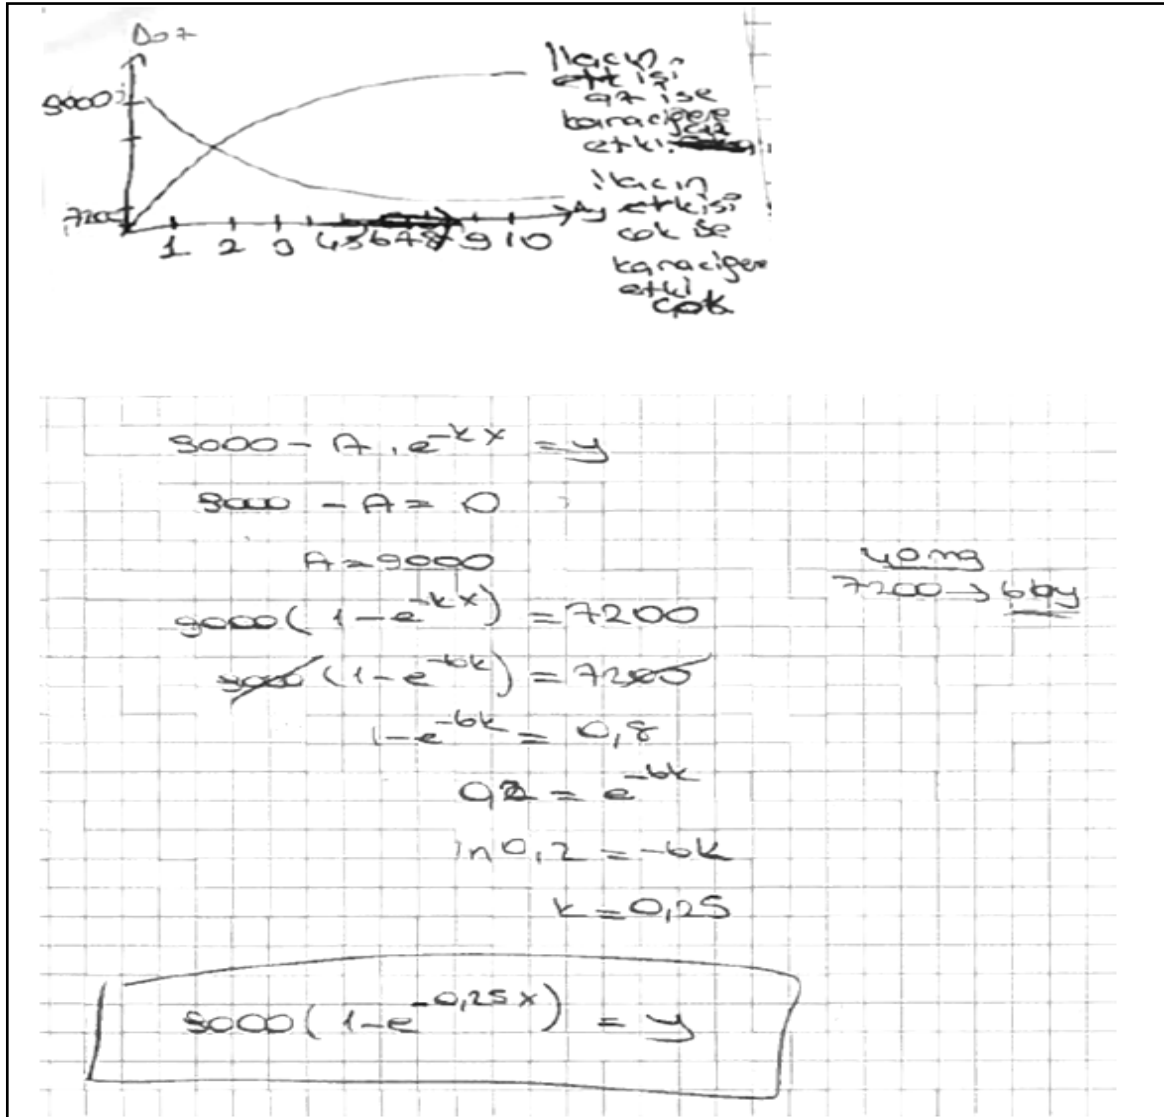 Doz
9000
7200
1 2 3 4 5 6 7 8 9 10
Ay
İlacın
etkisi
az ise
karaciğere
etki az
İlacın
etkisi
çok ise
karaciğere
etki
çok
9000 - A . e^-kx = y
9000 - A = 0
A = 9000
9000 ( 1 - e^-kx ) = 7200
9000 ( 1 - e^-6k ) = 7200
1 - e^-6k = 0,8
0,2 = e^-6k
ln 0,2 = -6k
k = 0,25
9000 ( 1 - e^-0,25x ) = y
40 mg
7200 → 6 ay